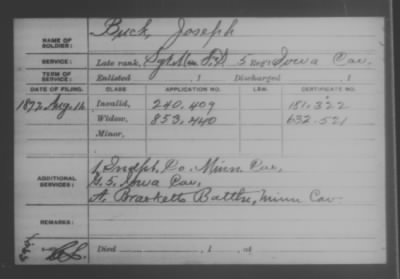 Buck, Joseph
NAME OF SOLDIER:
SERVICE: Late rank, Sgt Maj F.S. 5 Reg't Iowa Cav.
TERM OF SERVICE: Enlisted , 1 Discharged , 1
DATE OF FILING. CLASS APPLICATION NO. LAW. CERTIFICATE NO.
1872 Aug. 14 Invalid, 240.409 151.322
Widow, 853.440 632.521
Minor,
ADDITIONAL SERVICES:
1 Indpt. Co. Minn Cav,
G. 5, Iowa Cav,
A. Bracketts Battln, Minn Cav.
REMARKS:
Died , 1 , at